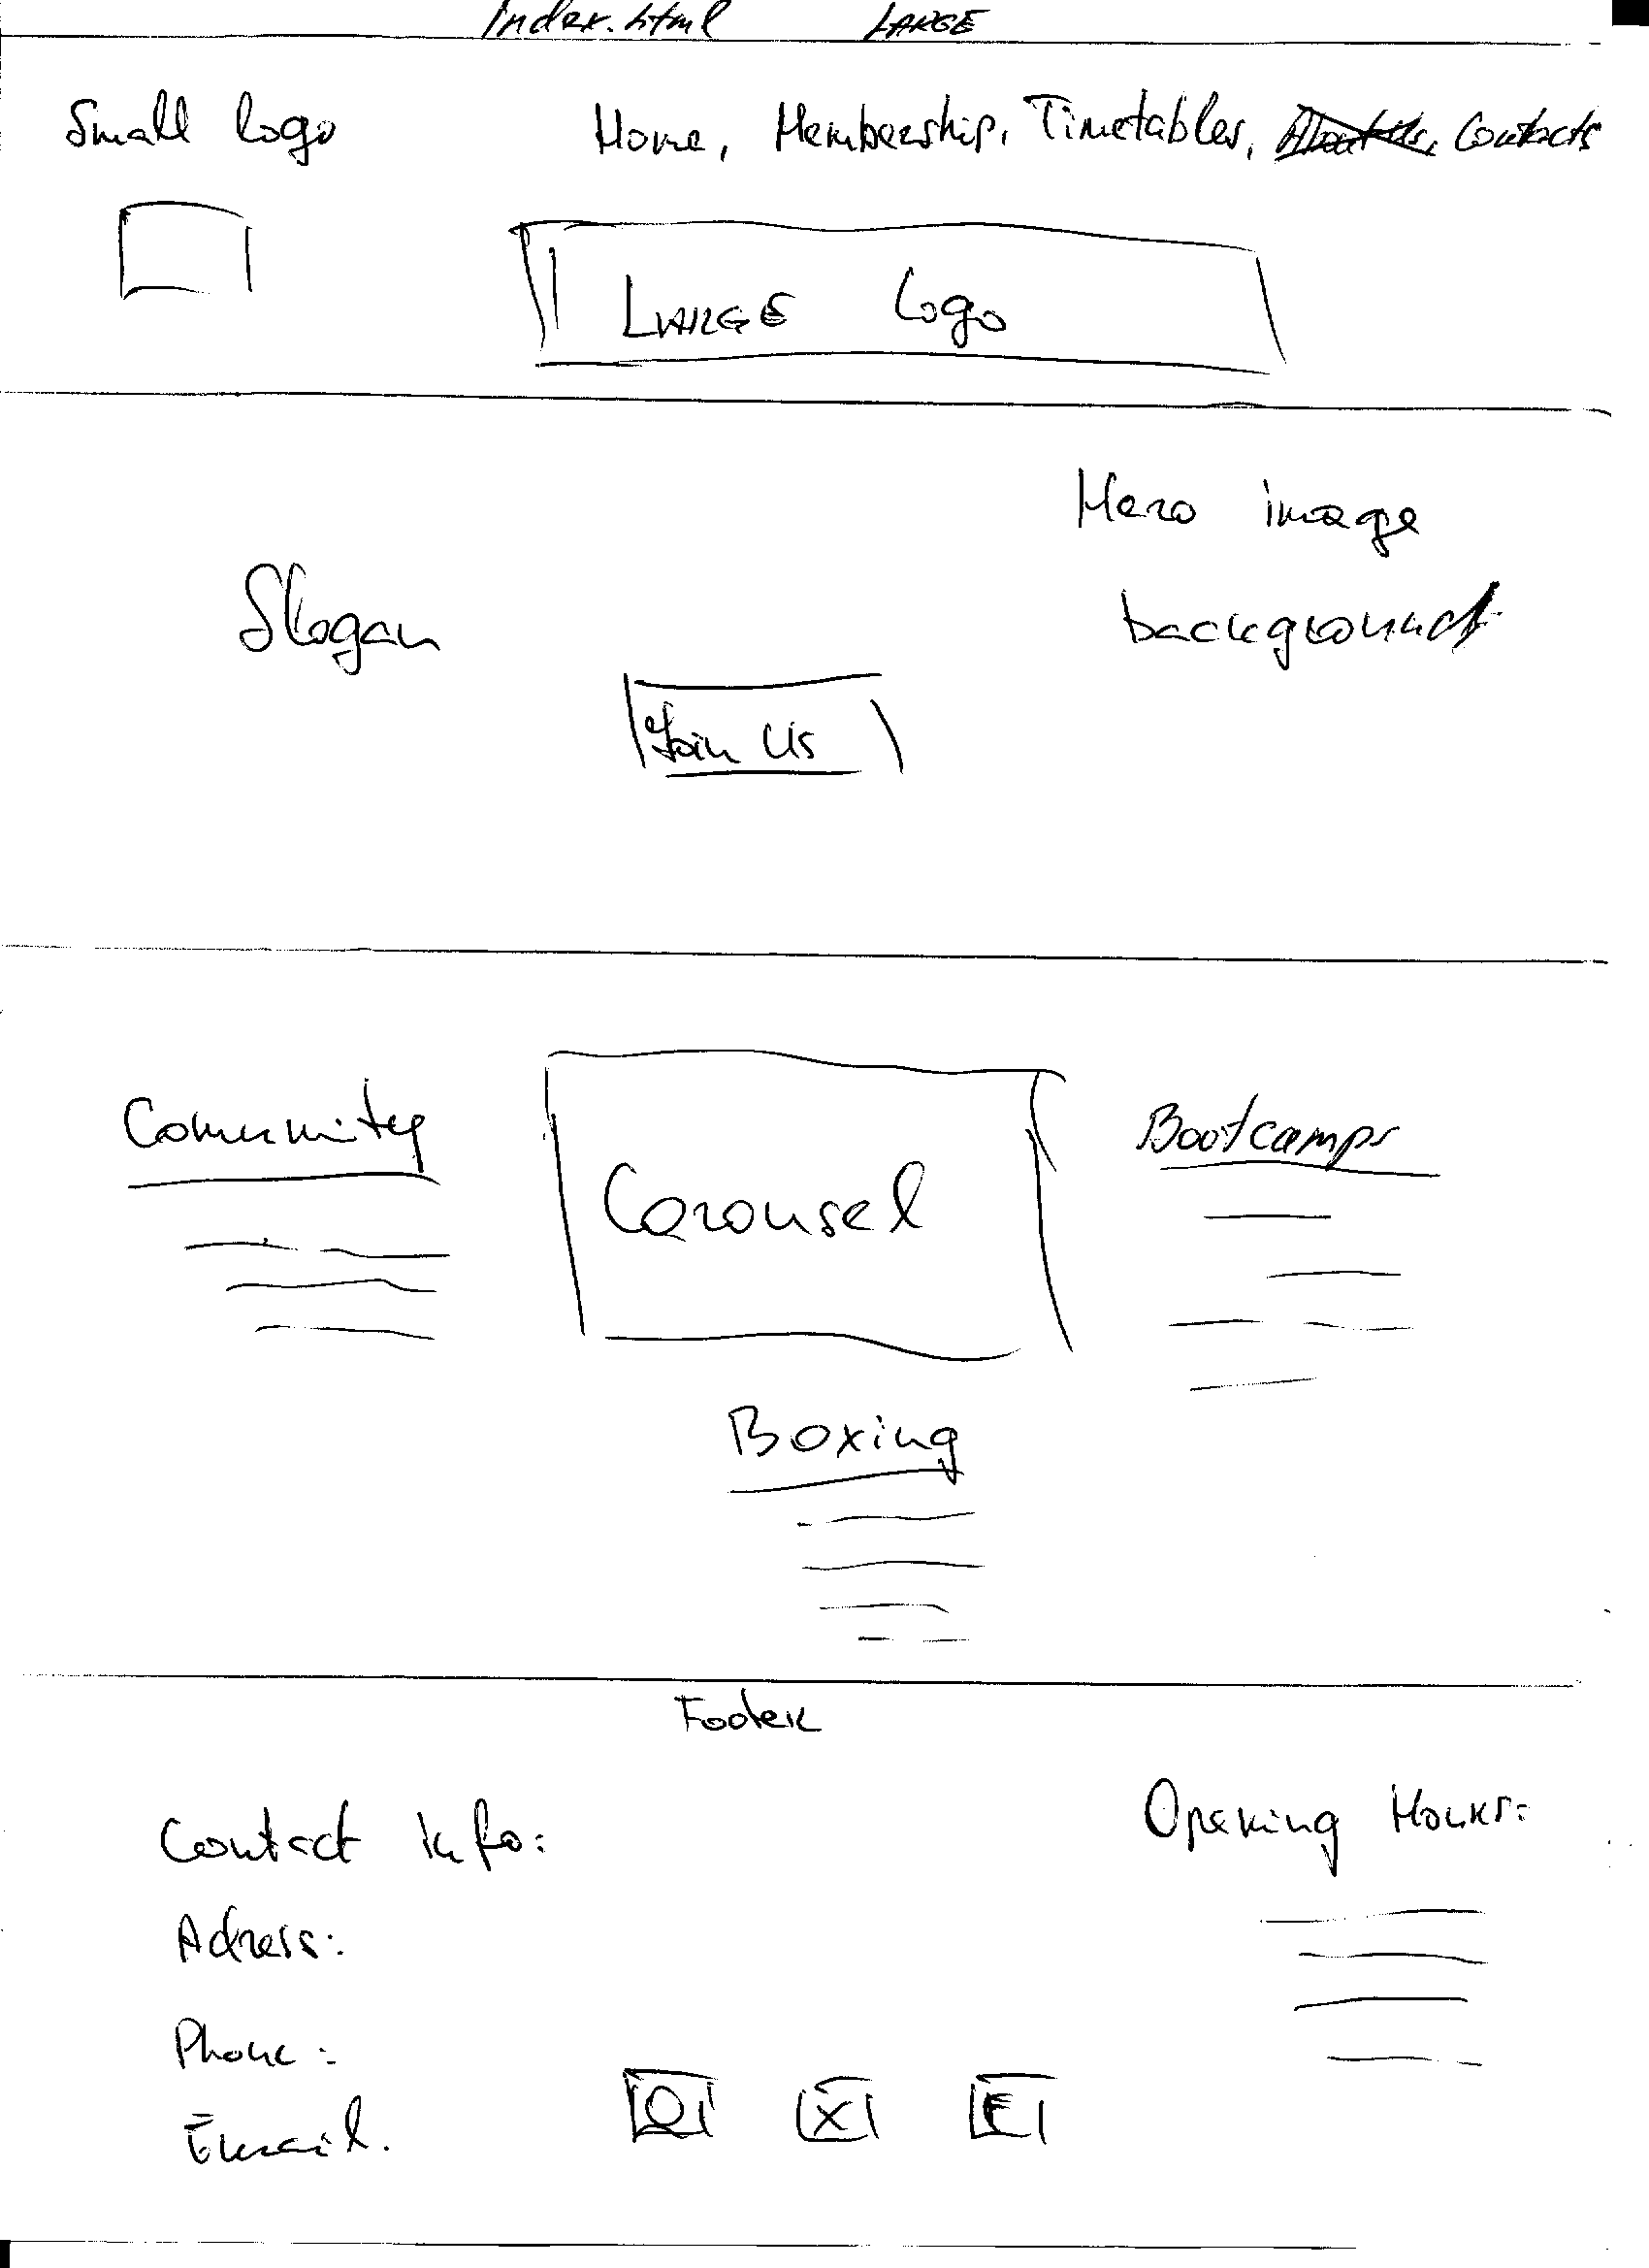 Index.html LARGE
Small logo Home, Membership, Timetables, Contacts
LARGE logo
Hero image
background
Slogan
Join Us
Community Carousel Bootcamps
Boxing
Footer
Contact Info: Opening Hours:
Adress:
Phone:
Email.
X F